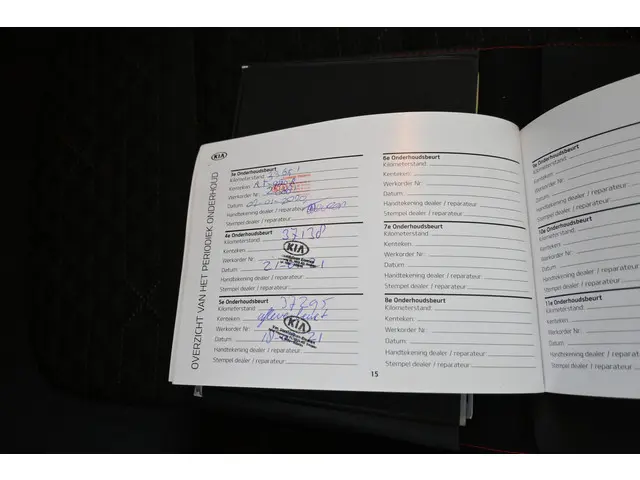 KIA
OVERZICHT VAN HET PERIODIEK ONDERHOUD
3e Onderhoudsbeurt
Kilometerstand
Kenteken
Werkorder Nr.
Datum
Handtekening dealer / reparateur
Stempel dealer / reparateur
4e Onderhoudsbeurt
Kilometerstand 37138
Kenteken
KIA
Werkorder Nr.
Datum
Handtekening dealer / reparateur
Stempel dealer / reparateur
5e Onderhoudsbeurt
Kilometerstand 37295
Kenteken
KIA
Werkorder Nr.
Datum
Handtekening dealer / reparateur
Stempel dealer / reparateur
6e Onderhoudsbeurt
Kilometerstand
Kenteken
Werkorder Nr.
Datum
Handtekening dealer / reparateur
Stempel dealer / reparateur
7e Onderhoudsbeurt
Kilometerstand
Kenteken
Werkorder Nr.
Datum
Handtekening dealer / reparateur
Stempel dealer / reparateur
8e Onderhoudsbeurt
Kilometerstand
Kenteken
Werkorder Nr.
Datum
Handtekening dealer / reparateur
Stempel dealer / reparateur
15
9e Onderhoudsbeurt
Kilometerstand
Kenteken
Werkorder Nr.
Datum
Handtekening dealer / reparateur
Stempel dealer / reparateur
10e Onderhoudsbeurt
Kilometerstand
Kenteken
Werkorder Nr.
Datum
Handtekening dealer / reparateur
Stempel dealer / reparateur
11e Onderhoudsbeurt
Kilometerstand
Kenteken
Werkorder Nr.
Datum
Handtekening dealer / reparateur
Stempel dealer / reparateur